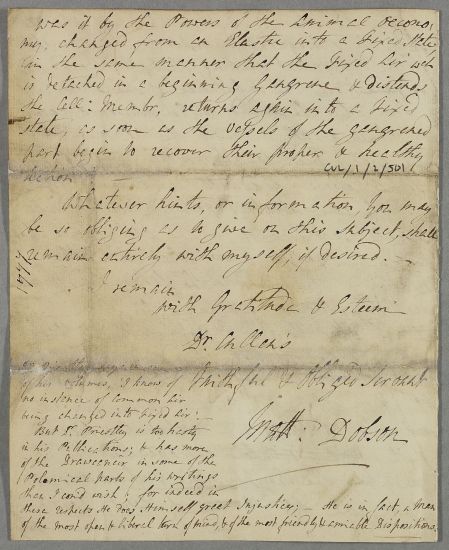 was it by the Powers of the Animal oecono:
my, changed from an Elastic into a Fixed State,
in the same manner that the Fixed Air wch
is detached in a beginning Gangrene & distends
the Cell: Membr, returns again into a Fixed
state, as soon as the vessels of the gangrened
part begin to recover their proper & healthy
Action. —
CUL/1/2/501
Whatever hints, or information, You may
be so obliging as to give on this subject, shall
remain entirely with myself, if desired. —
1777
I remain
with Gratitude & Esteem
Dr. Cullen's
Faithful & Obliged Servant
Matt: Dobson
of his & mines, I know of
no instance of common Air
being changed into fixed Air:
But Dr. Priestley is too hasty
in his Publications; & has more
of the in some of the
Polemical parts of his writings
than I could wish; for indeed in
these respects He does Himself great Injustice; — He is in fact, a Man
of the most open & liberal turn of mind, & of the most friendly & amiable Dispositions.